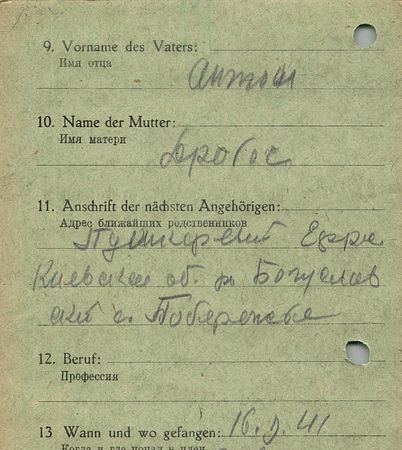 9. Vorname des Vaters:
Имя отца
Антон
10. Name der Mutter:
Имя матери
11. Anschrift der nächsten Angehörigen:
Адрес ближайших родственников
Киевская об. р. Богуслав
ский с. Побережье
12. Beruf:
Профессия
13 Wann und wo gefangen: 16.9.41
Когда и где попал в плен